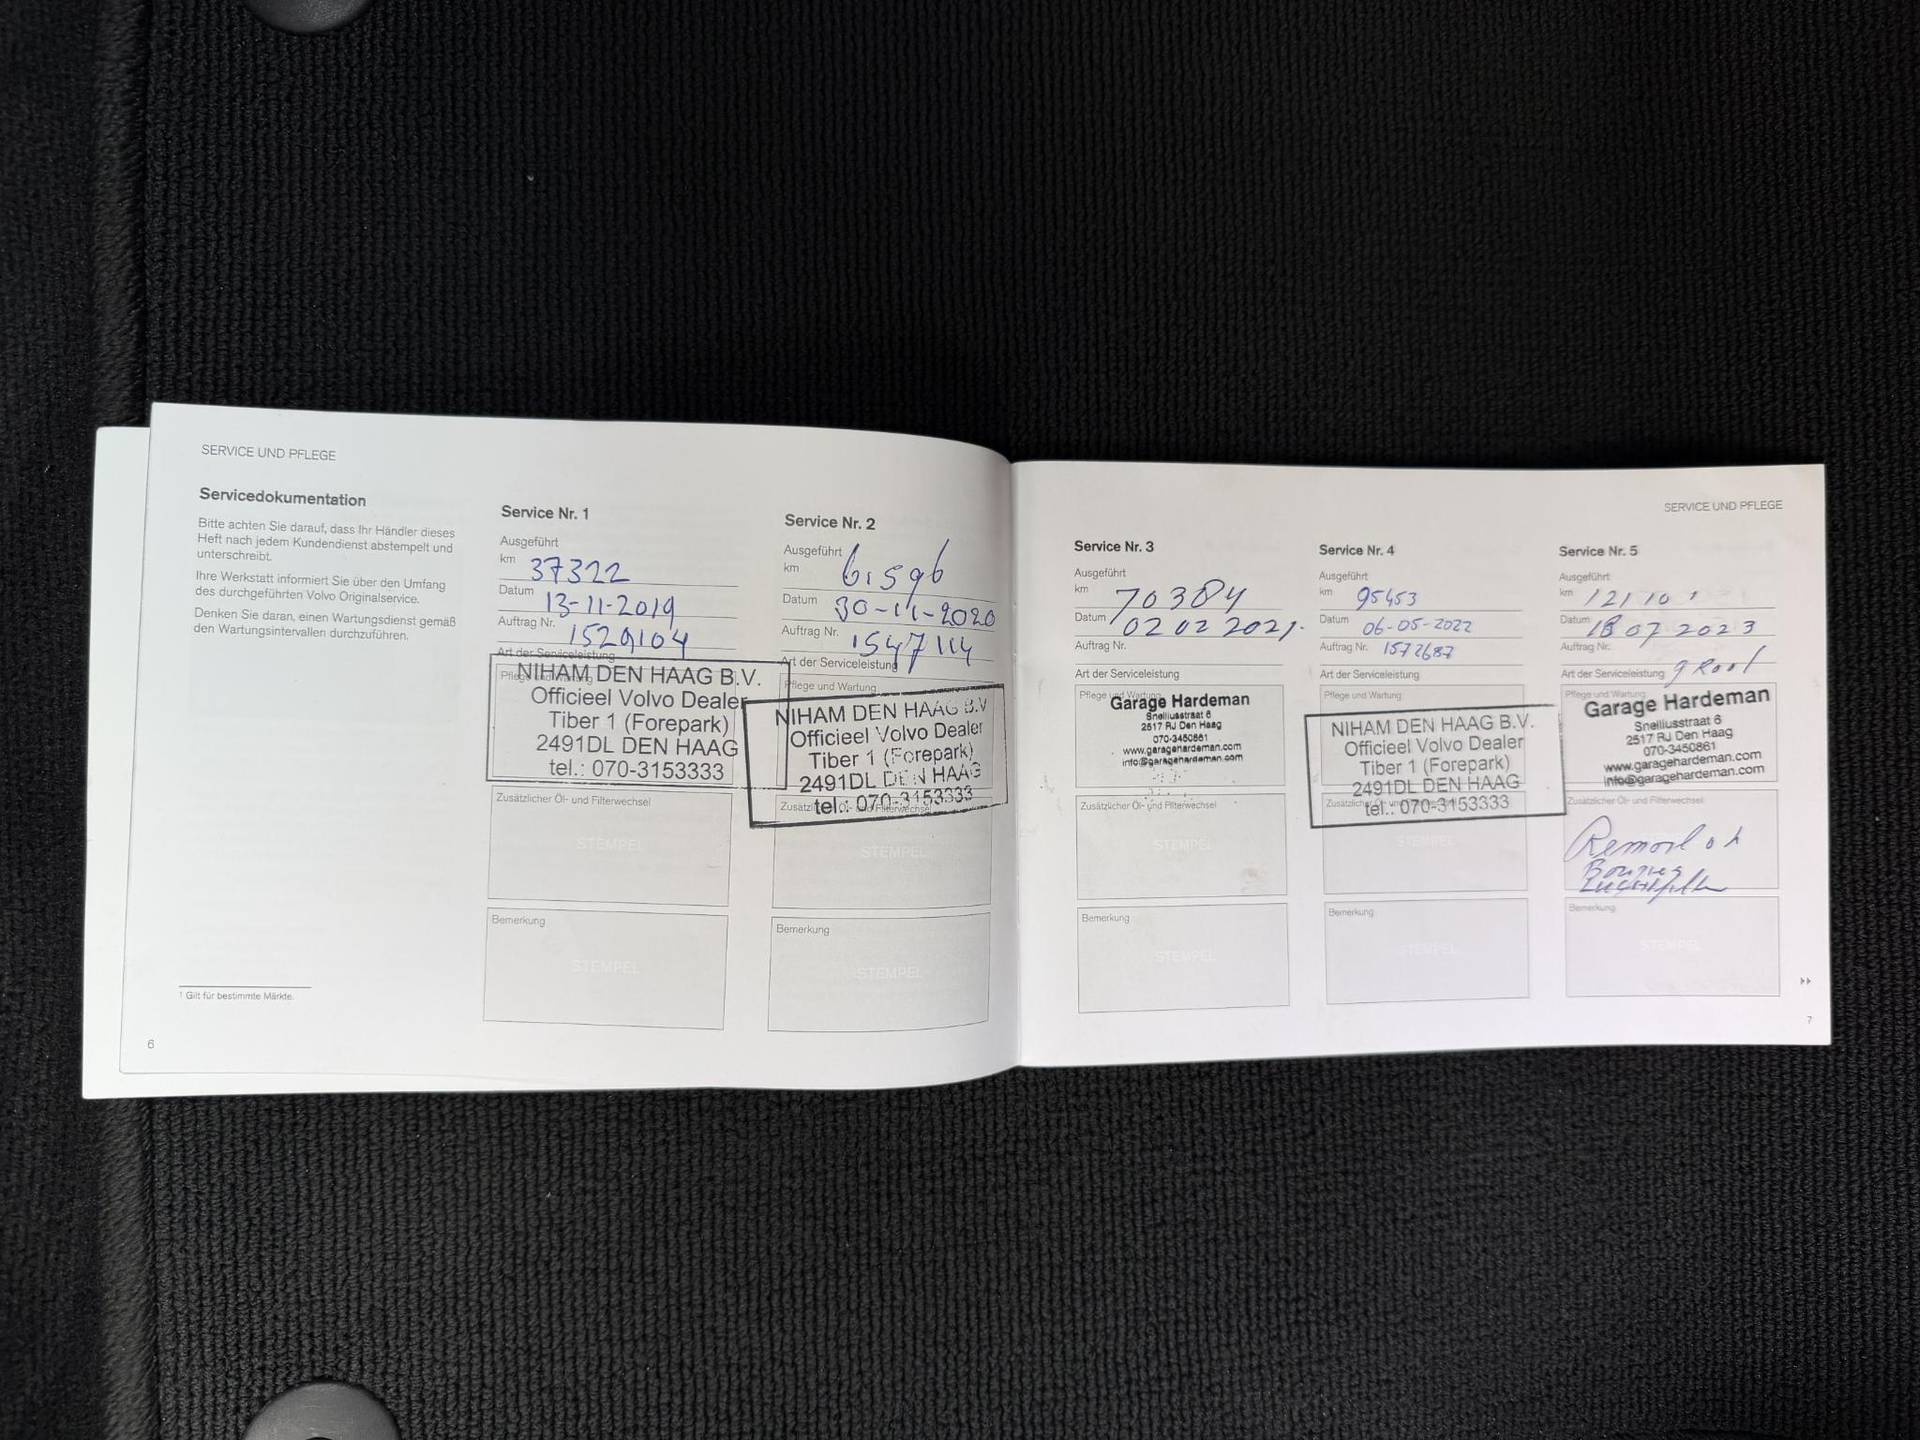 SERVICE UND PFLEGE
Servicedokumentation
Bitte achten Sie darauf, dass Ihr Händler dieses
Heft nach jedem Kundendienst abstempelt und
unterschreibt.
Ihre Werkstatt informiert Sie über den Umfang
des durchgeführten Volvo Originalservice.
Denken Sie daran, einen Wartungsdienst gemäß
den Wartungsintervallen durchzuführen.
1 Gilt für bestimmte Märkte.
6
Service Nr. 1
Ausgeführt
km 37322
Datum 13-11-2019
Auftrag Nr. 1529104
Art der Serviceleistung
NIHAM DEN HAAG B.V.
Officieel Volvo Dealer
Tiber 1 (Forepark)
2491DL DEN HAAG
tel.: 070-3153333
Zusätzlicher Öl- und Filterwechsel
STEMPEL
Bemerkung
STEMPEL
Service Nr. 2
Ausgeführt
km 61596
Datum 30-11-2020
Auftrag Nr. 1547114
Art der Serviceleistung
Pflege und Wartung
NIHAM DEN HAAG B.V
Officieel Volvo Dealer
Tiber 1 (Forepark)
2491DL DEN HAAG
tel.: 070-3153333
Zusätzlicher Öl- und Filterwechsel
STEMPEL
Bemerkung
STEMPEL
SERVICE UND PFLEGE
Service Nr. 3
Ausgeführt
km 70384
Datum 02 02 2021.
Auftrag Nr.
Art der Serviceleistung
Pflege und Wartung
Garage Hardeman
Snelliusstraat 6
2517 RJ Den Haag
070-3450861
www.garagehardeman.com
info@garagehardeman.com
Zusätzlicher Öl- und Filterwechsel
STEMPEL
Bemerkung
STEMPEL
Service Nr. 4
Ausgeführt
km 95453
Datum 06-05-2022
Auftrag Nr. 1572687
Art der Serviceleistung
Pflege und Wartung
NIHAM DEN HAAG B.V.
Officieel Volvo Dealer
Tiber 1 (Forepark)
2491DL DEN HAAG
tel.: 070-3153333
Zusätzlicher Öl- und
STEMPEL
Bemerkung
STEMPEL
Service Nr. 5
Ausgeführt
km 121101
Datum 18 07 2023
Auftrag Nr.
Art der Serviceleistung groot
Pflege und Wartung
Garage Hardeman
Snelliusstraat 6
2517 RJ Den Haag
070-3450861
www.garagehardeman.com
info@garagehardeman.com
Zusätzlicher Öl- und Filterwechsel
Bemerkung
STEMPEL
7